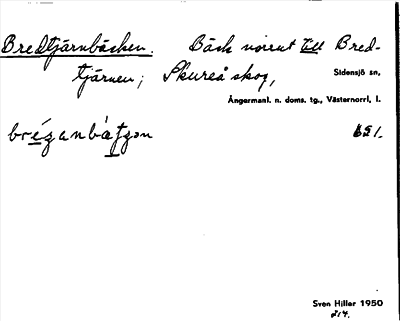 Bredtjärnbäcken. Bäck norrut till Bred-
tjärnen; Skureå skog, Sidensjö sn,
Ångermanl. n. doms. tg., Västernorrl, l.
651.
Sven Hiller 1950
214.